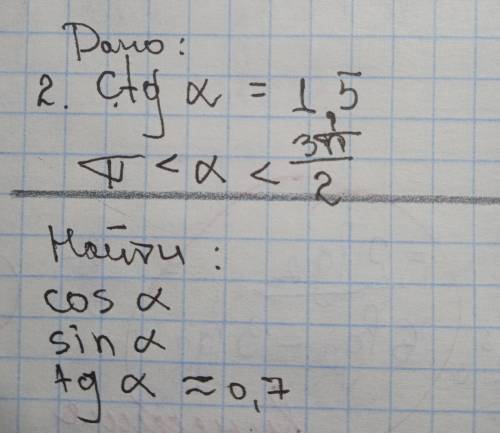 Дано:
2. Ctg α = 1,5
π < α < 3π/2
Найти:
cos α
sin α
tg α ≈ 0,7